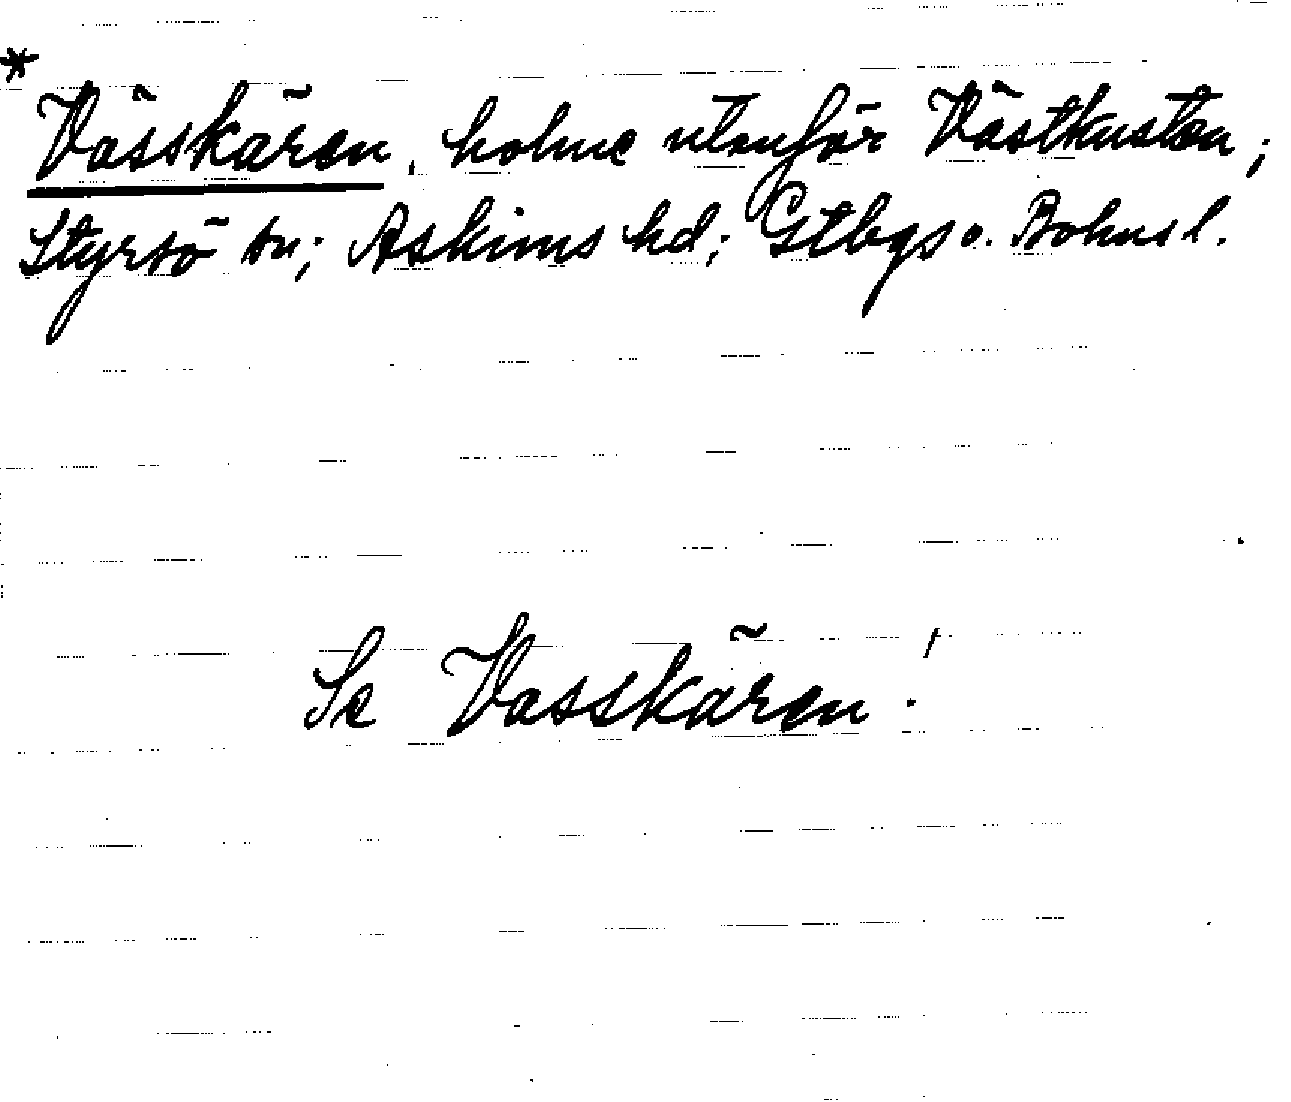 * Vässkären, holme utanför Västkusten;
Styrsö sn; Askims hd; Gtbgs o. Bohus l.
Se Vasskären!